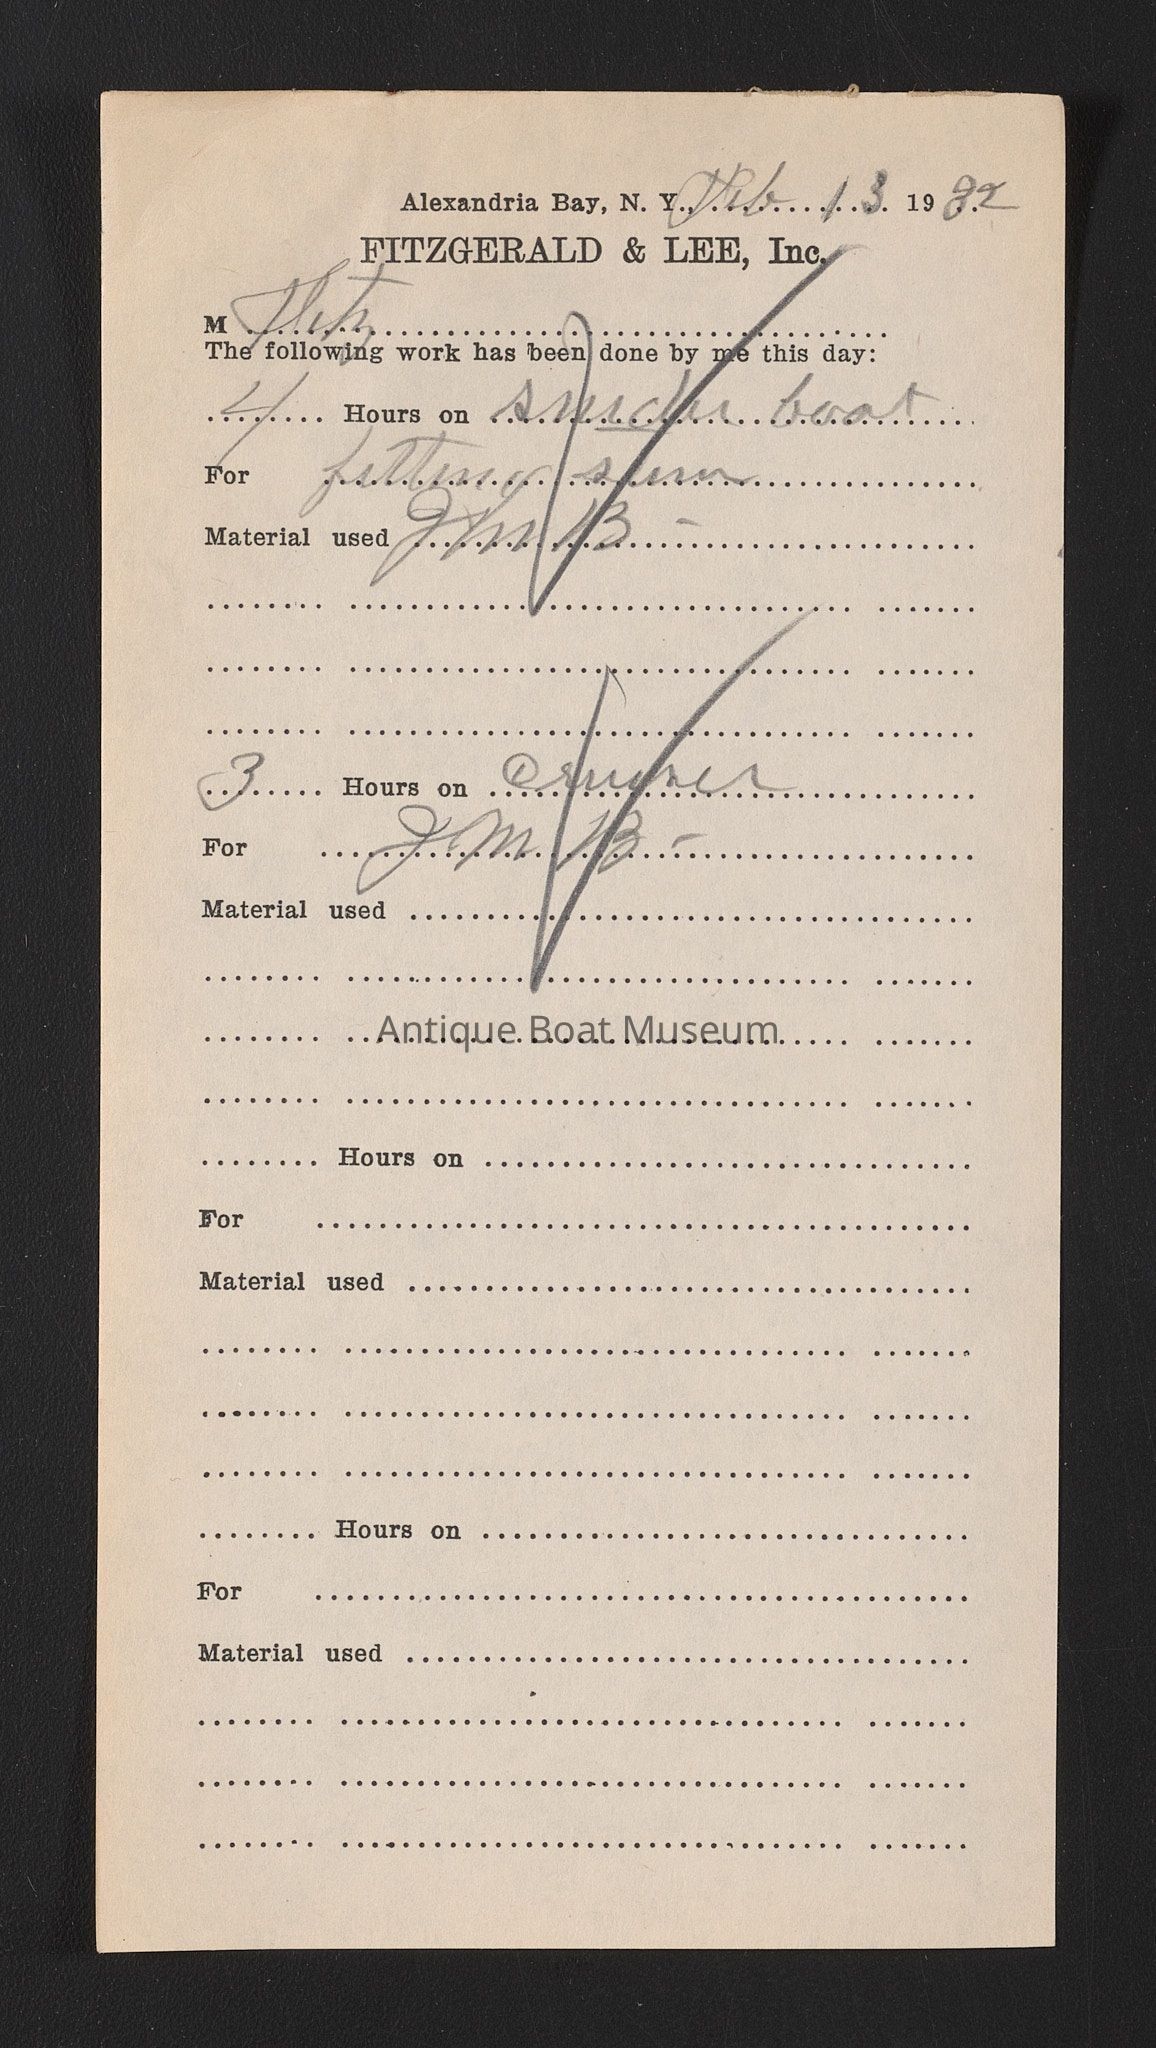 Alexandria Bay, N. Y., Feb 13 1932
FITZGERALD & LEE, Inc.
M
The following work has been done by me this day:
4 Hours on boat
For fitting
Material used J M B -
3 Hours on
For J M B -
Material used
Antique Boat Museum
Hours on
For
Material used
Hours on
For
Material used